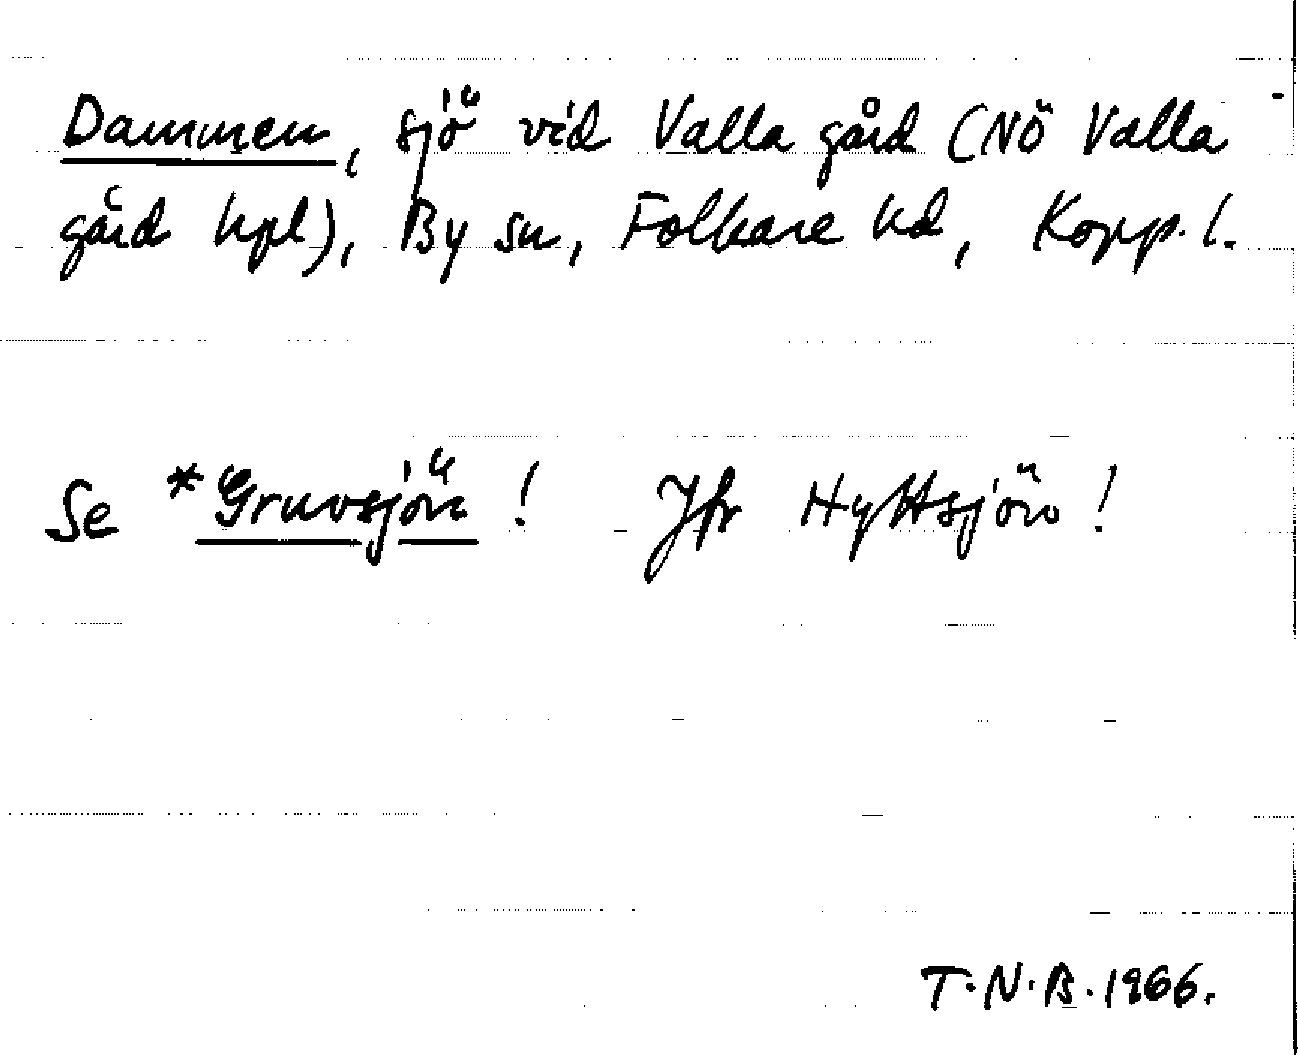 Dammen, sjö vid Valla gård (NÖ Valla
gård hpl), By sn, Folkare hd, Kopp. l.
Se *Gruvsjön! Jfr Hyttsjön!
T.N.B. 1966.